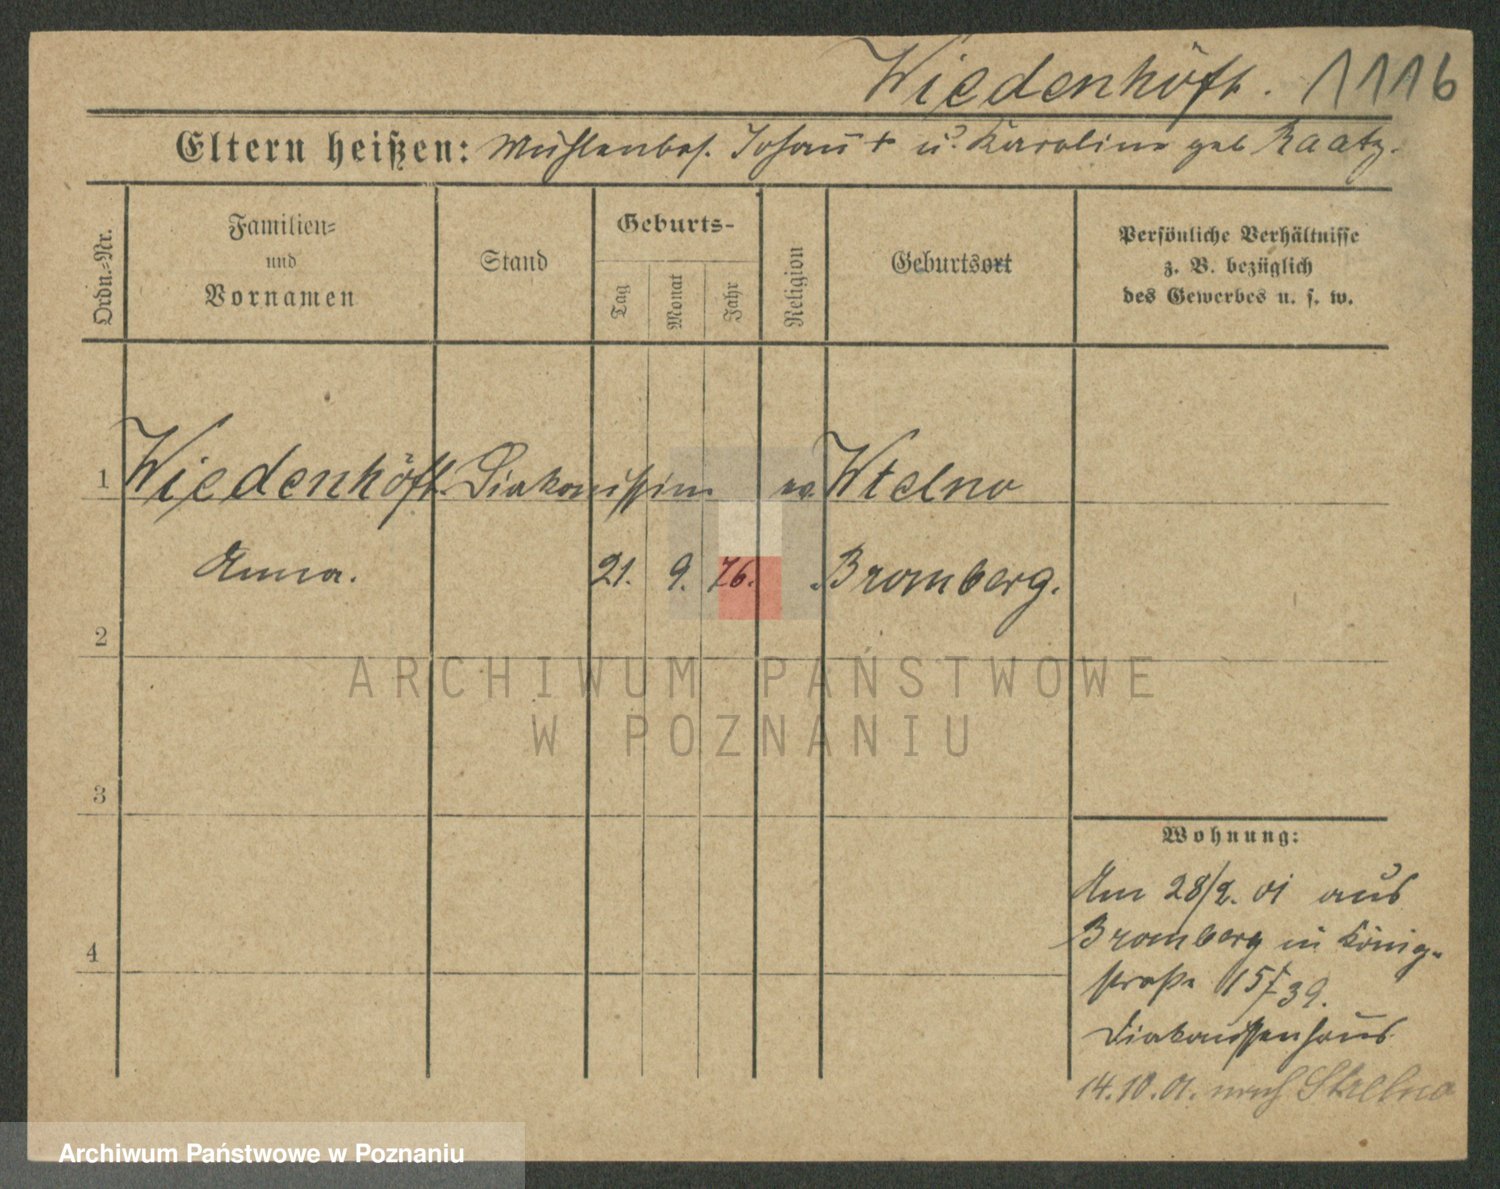 Wiedenhöft. 1116
Eltern heißen: Mühlenbes. Johann + u. Karoline geb Raatz.
Ordn.-Nr.
Familien-
und
Vornamen
Stand
Geburts-
Tag
Monat
Jahr
Religion
Geburtsort
Persönliche Verhältnisse
z. B. bezüglich
des Gewerbes u. s. w.
1 Wiedenhöft. Diakonissin ev. Wtelno
Anna. 21. 9. 76. Bromberg.
2
3
4
Wohnung:
Am 28/2. 01 aus
Bromberg in König-
straße 15/39.
Diakonissenhaus
14.10.01. nach Strelno
ARCHIWUM PAŃSTWOWE
W POZNANIU
Archiwum Państwowe w Poznaniu